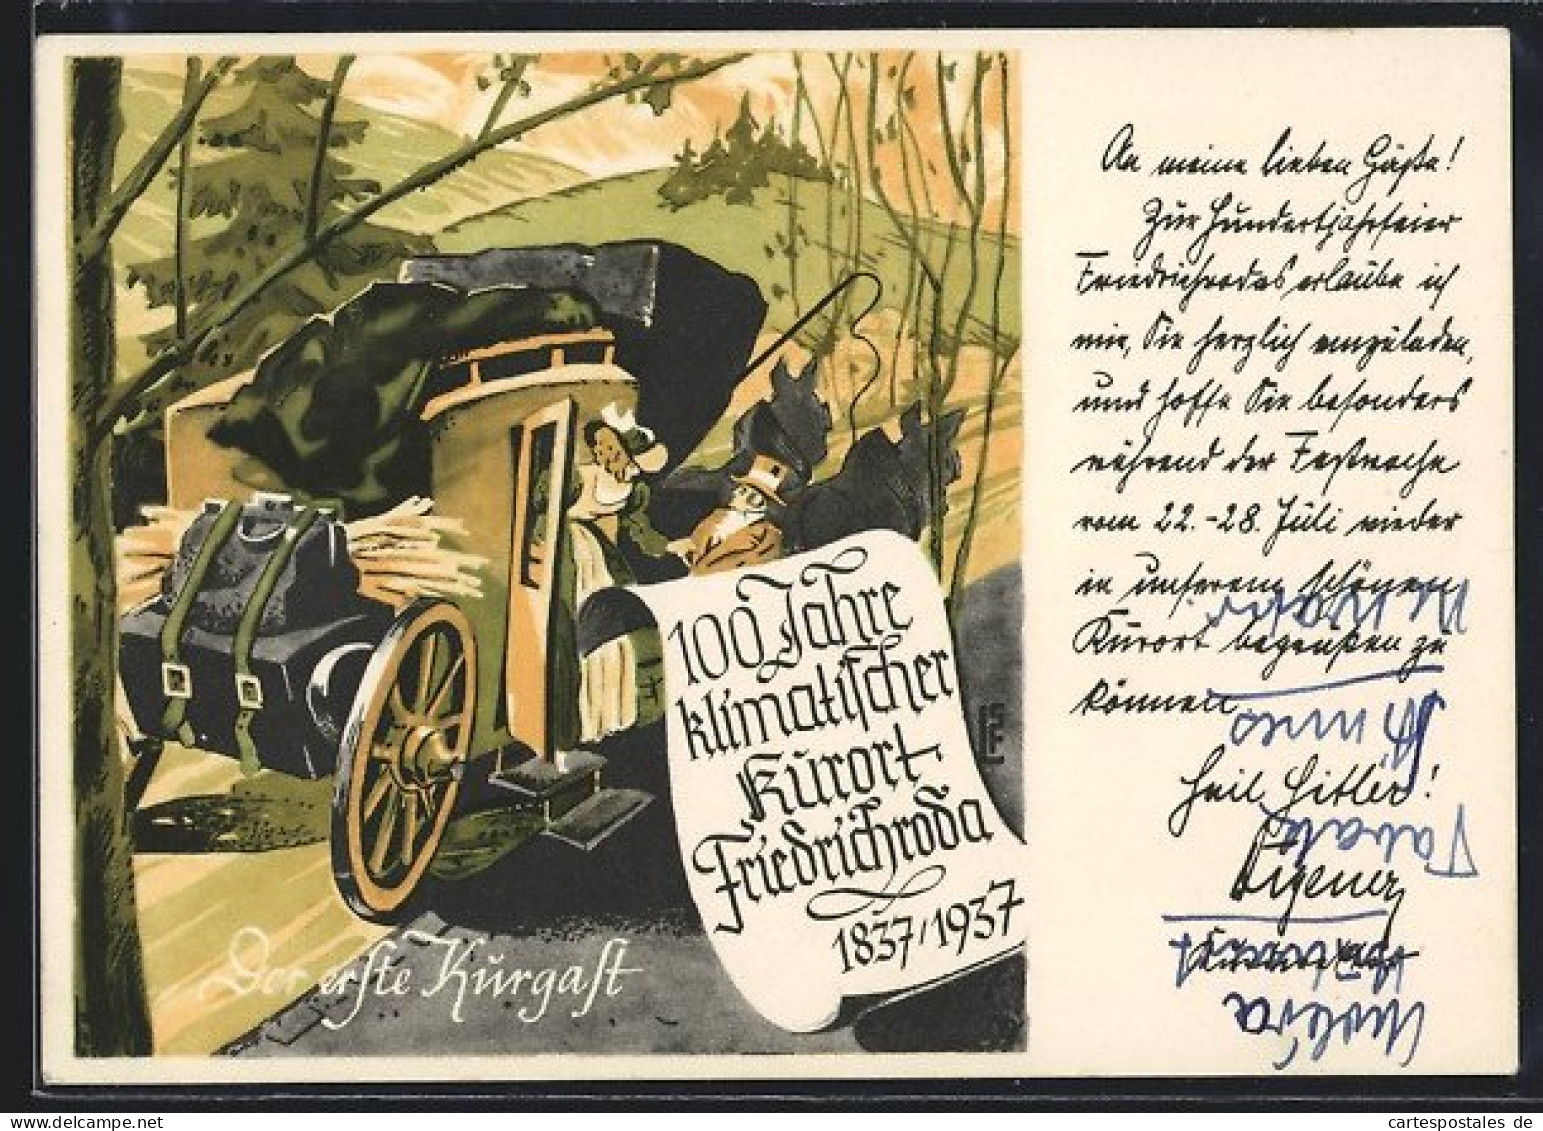 An meine lieben Gäste!
Zur Hundertjahrfeier
Friedrichrodas erlaube ich
mir, Sie herzlich einzuladen,
und hoffe Sie besonders
während der Festwoche
vom 22.-28. Juli wieder
in unserem schönen
Kurort begrüßen zu
können.
Heil Hitler!
100 Jahre
klimatischer
Kurort
Friedrichroda
1837/1937
Der erste Kurgast
cartespostales de